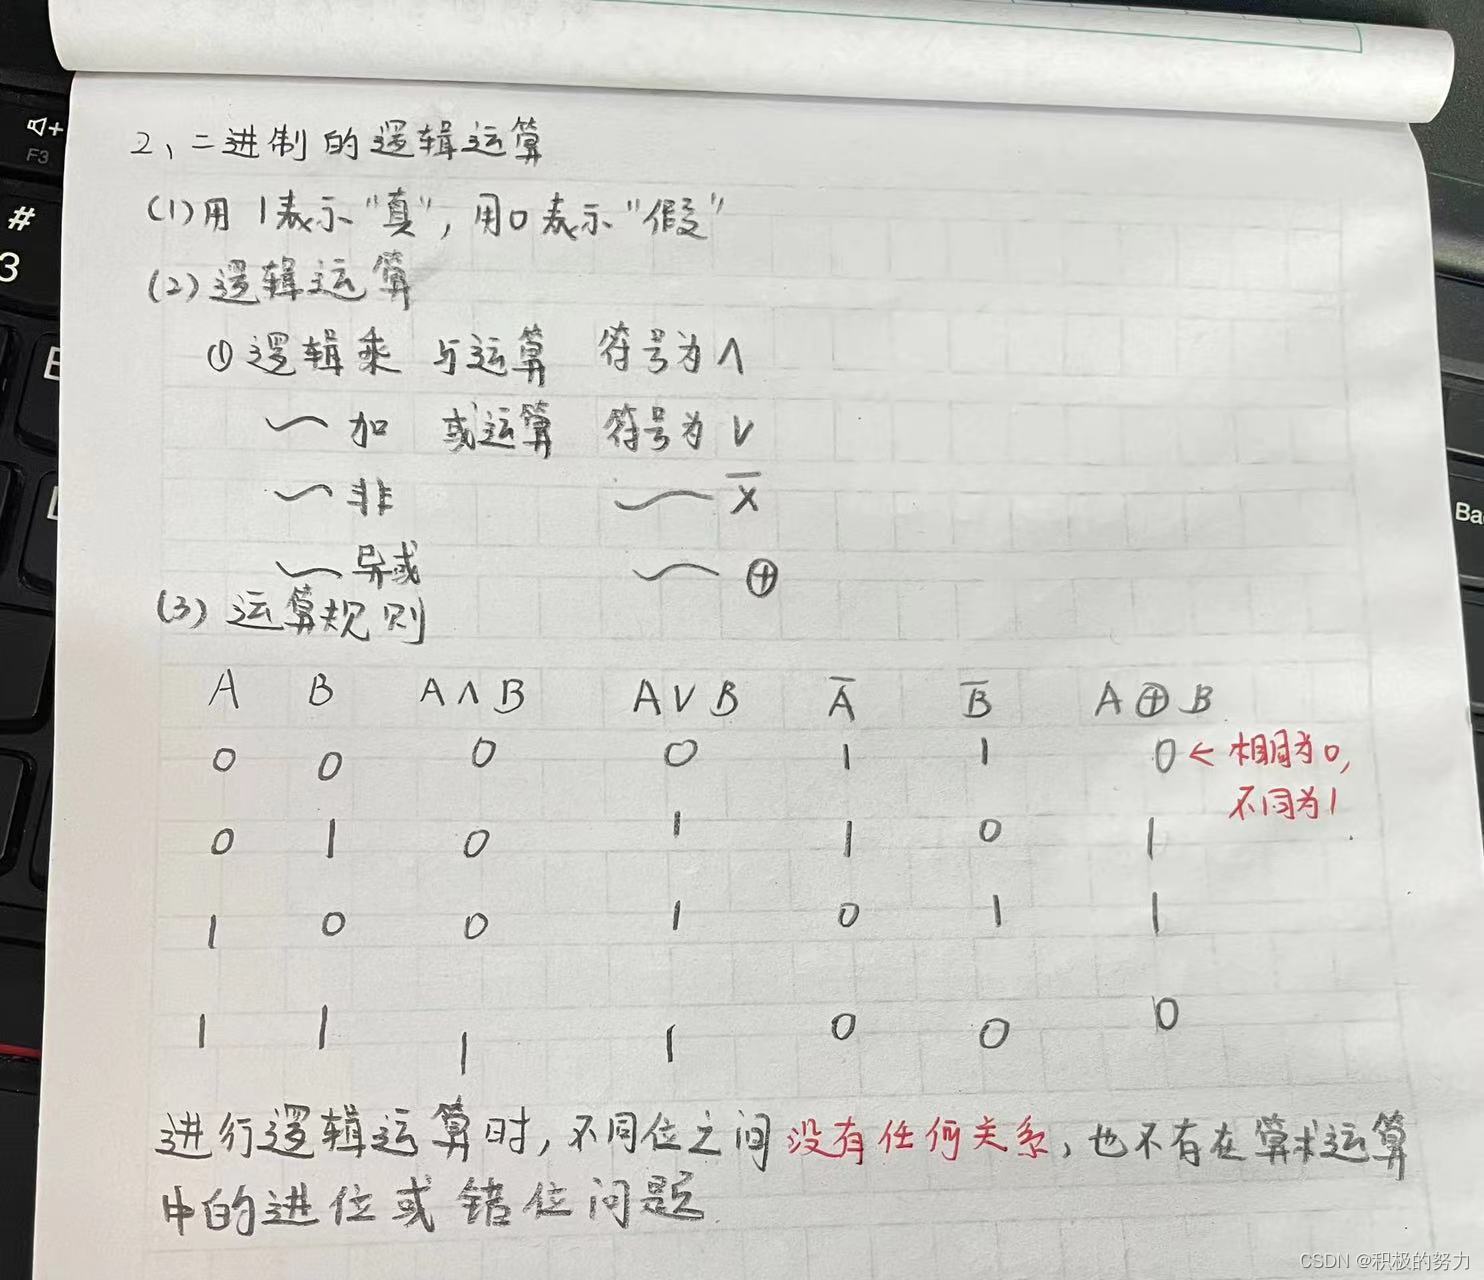 2、二进制的逻辑运算
(1)用1表示"真"，用0表示"假"
(2)逻辑运算
①逻辑乘 与运算 符号为∧
〜加 或运算 符号为∨
〜非 〜 X̅
〜异或 〜 ⊕
(3)运算规则
A B A∧B A∨B A̅ B̅ A⊕B
0 0 0 0 1 1 0 ← 相同为0,
不同为1
0 1 0 1 1 0 1
1 0 0 1 0 1 1
1 1 1 1 0 0 0
进行逻辑运算时，不同位之间没有任何关系，也不存在算术运算
中的进位或错位问题
CSDN @积极的努力
F3
#
3
Ba